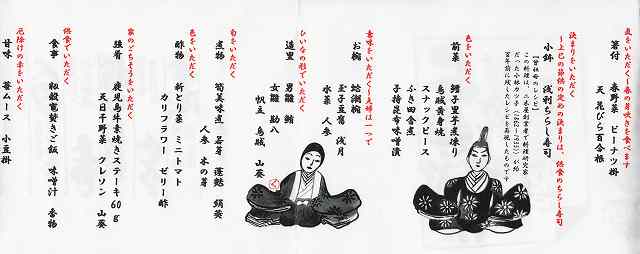 直をいただく〜春の芽吹きを食べます
箸付 春野菜 ピーナツ掛
天 花びら百合根
決まりをいただく
〜上巳の節供の定めの決まりは、供食のちらし寿司
小鉢 浅利ちらし寿司
色をいただく
前菜 鱈子里芋煮凍り
烏賊黄身焼
スナックピース
ふき田舎煮
子持昆布味噌漬
意味をいただく〜夫婦は一つで
お椀 蛤潮椀
玉子豆腐 浅月
水菜 人参
ひいなの形でいただく
造里 男雛 鮪
女雛 勘八
帆立 烏賊 山葵
旬をいただく
煮物 筍美味煮 若芽 蓬麩 絹莢
人参 木の芽
色をいただく
酢物 新とり菜 ミニトマト
カリフラワー ゼリー酢
家のごちそうをいただく
強肴 鹿児島牛素焼きステーキ60g
天日干野菜 クレソン 山葵
供食でいただく
食事 籾殻竈焚きご飯 味噌汁 香物
厄除けの赤をいただく
甘味 苺ムース 小豆掛